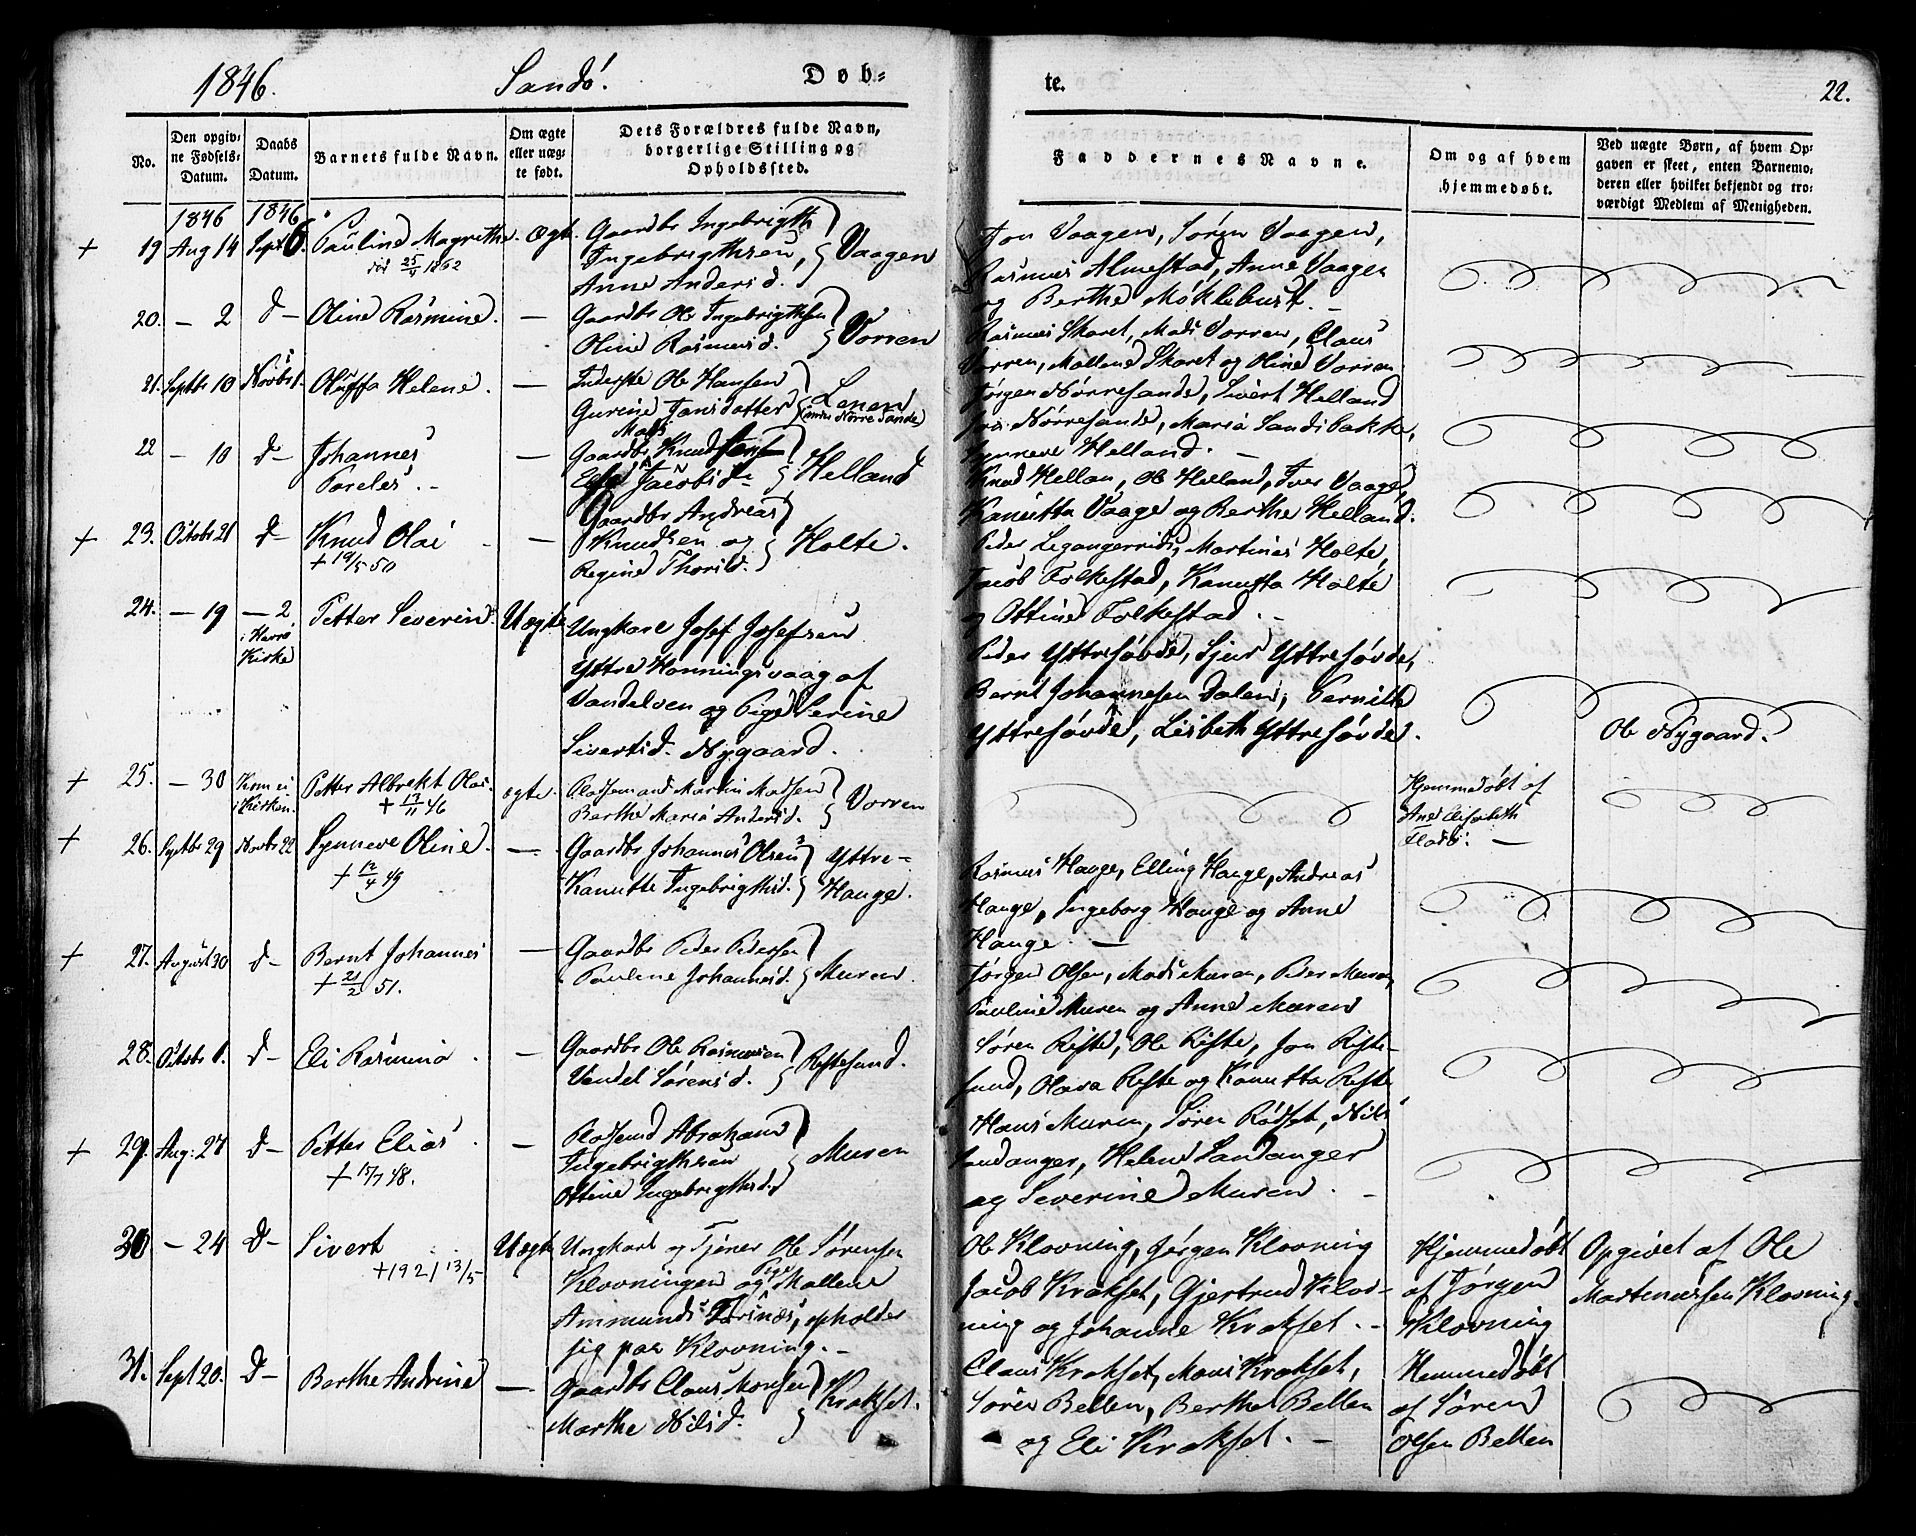 1846.
Sandö.
Döb=
te.
22.
No.
Den opgiv=
ne Födsels=
Datum.
Daabs
Datum.
Barnets fulde Navn.
Om ægte
eller uæg=
te födt.
Dets Forældres fulde Navn,
borgerlige Stilling og
Opholdssted.
Faddernes Navne.
Om og af hvem
hjemmedöbt.
Ved uægte Börn, af hvem Op=
gaven er skeet, enten Barnemo=
deren eller hvilket bekjendt og tro=
værdigt Medlem af Menigheden.
1846 1846
+ 19 Aug 14 Sept 6. Pauline Magrethe. Ægt.
död 25/4 1862
Gaardbr Ingebrigth
Ingebrigthsen, Vaagen
Anne Andersd.
Jon Vaagen, Sören Vaagen,
Rasmus Almestad, Anne Vaagen
og Berthe Möklebust. -
20. - 2 d- Oline Rasmine. -
Gaardbr Ole Ingebrigthsen
Oline Rasmusd. Vorren
Rasmus Skaret, Mads Vorren, Claus
Vorren, Mallene Skaret og Oline Vorren
21. Septbr 10 Novbr 1. Oluffa Helene. -
Inderste Ole Hansen
Gurine Jonsdatter Lenen
(under Nörre Sande)
Jörgen Nörresande, Sivert Helland
Nörresande, Maria Sandsbakke,
Synneve Helland. -
22 - 10 d- Johannes
Pareles. -
Mads
Gaardbr Knudsen
Jacobsd. Helland
Knud Hellan, Ole Helland, Iver Vaage,
Kanutta Vaage og Berthe Helland.
+ 23. Octobr 21 d- Knud Olai -
+ 19/5 50
Gaardbr Andreas
Knudsen og Holte.
Regine Thorsd.
Peder Legangerrids, Martines Holte,
Jacob Folkestad, Kanutta Holte
og Ottine Folkestad. -
24. - 19 - 2 Petter Severin. Uægte
i Herrö
Kirke
Ungkarl Josef Josefsen
Yttre Honningsvaag af
Vandelven og Pige Serine
Sivertsd. Nygaard.
Peder Yttresövde, Sjur Yttresövde,
Bernt Johannesen Dalen, Pernille
Yttresövde, Lisbeth Yttresövde.
Ole Nygaard.
+ 25. - 30 Kom ei
i Kirken. Petter Albrekt Olai. ægte.
+ 17/11 46
Pladsemand Martin Madsen
Berthe Maria Andersd. Vorren
Hjemmedöbt af
Ane Elisabeth
+ 26. Septbr 29 Novbr 22 Synneve Oline. -
+ 12/4 49
Gaardbr Johannes Olsen Yttre-
Kanutte Ingebrigthsd. Hauge.
Rasmus Hauge, Elling Hauge, Andreas
Hauge, Ingeborg Hauge og Anne
Hauge. -
+ 27. August 30 d- Bernt Johannes -
+ 21/2 51.
Gaardbr Peder Pedersen
Pauline Johannesd. Muren.
Jörgen Olsen, Mads Muren, Peder Muren,
Pauline Muren og Anne Muren
28. Octobr 1. d- Eli Rasmina. -
Gaardbr Ole Rasmussen
Vendel Sörensd. Ristesund.
Sören Riste, Ole Riste, Jon Riste-
sund, Olava Riste og Kanutta Riste
+ 29. Aug: 27 d- Petter Elias. -
+ 15/7 48.
Pladsemd Abraham
Ingebrigthsen Muren
Ottine Ingebrigthsd.
Hans Muren, Sören Rödset, Nils
Sandanger, Helene Sandanger
og Severine Muren. -
30 - 24 d- Sivert Uægte
+ 1921 13/5
Ungkarl og Tjener Ole Sörensen
Klovningen og Pige Mallene
Ammunds opholder
sig paa Klovning. -
Ole Klovning, Jörgen Klovning
Jacob Krakset, Gjertrud Klov-
ning og Johanne Krakset. -
Hjemmedöbt
af Jörgen
Klovning
Opgivet af Ole
Martenussen Klovning.
31. Sept 20. d- Berthe Andrine -
Gaardbr Claus Monsen Krakset.
Marthe Nilsd.
Claus Krakset, Mons Krakset,
Sören Bellen, Berthe Bellen
og Eli Krakset. -
Hemmedöbt
af Sören
Olsen Bellen